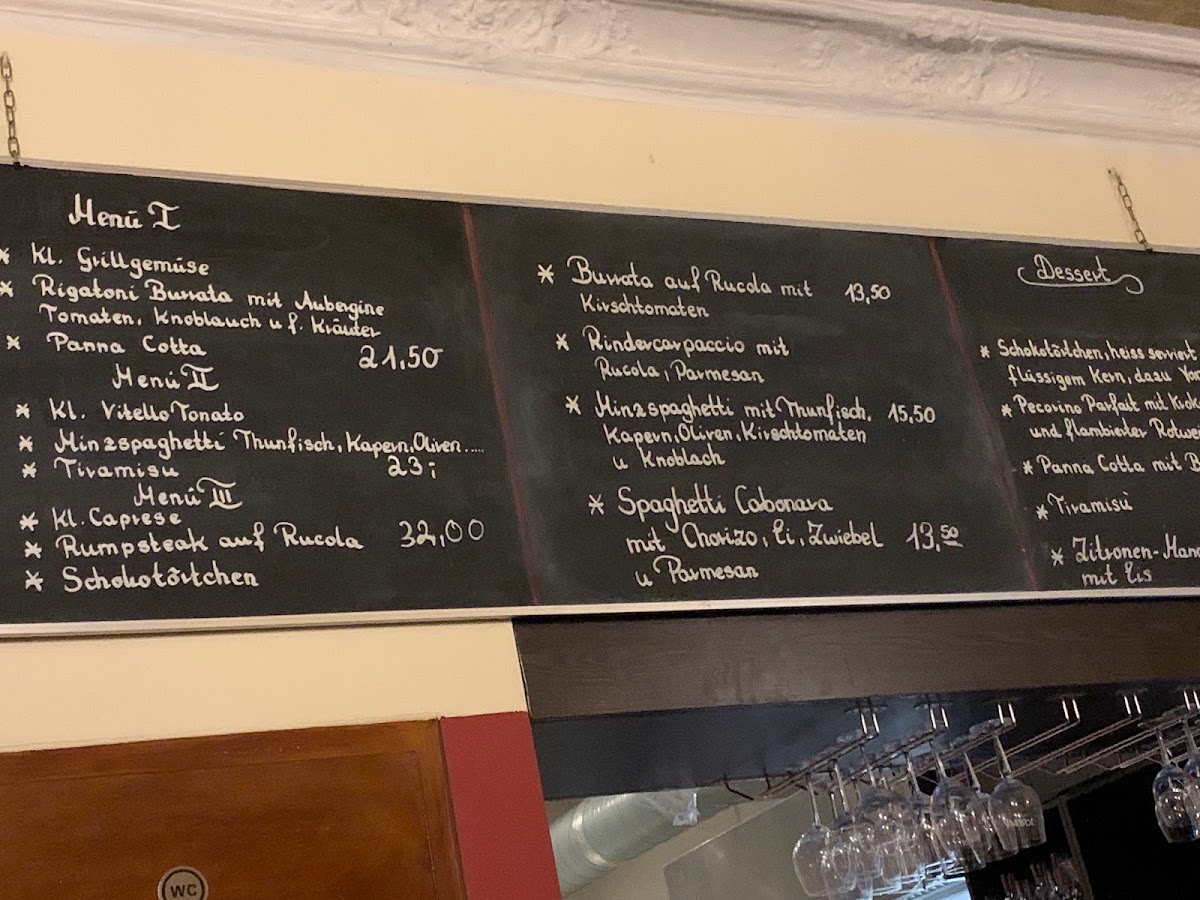 Menü I
* Kl. Grillgemüse
* Rigatoni Burrata mit Aubergine
Tomaten, Knoblauch u f. Kräuter
* Panna Cotta 21,50
Menü II
* Kl. Vitello Tonato
* Minzspaghetti Thunfisch, Kapern, Oliven.....
* Tiramisu 23;
Menü III
* Kl. Caprese
* Rumpsteak auf Rucola 32,00
* Schokotörtchen
* Burrata auf Rucola mit 13,50
Kirschtomaten
* Rindercarpaccio mit
Rucola, Parmesan
* Minzspaghetti mit Thunfisch, 15,50
Kapern, Oliven, Kirschtomaten
u Knoblach
* Spaghetti Cabonara
mit Chorizo, Ei, Zwiebel 13,50
u Parmesan
Dessert
* Schokotörtchen, heiss serviert
flüssigem Kern, dazu
* Pecorino Parfait mit
und flambierter
* Panna Cotta mit
* Tiramisù
* Zitronen-
mit Eis
WC